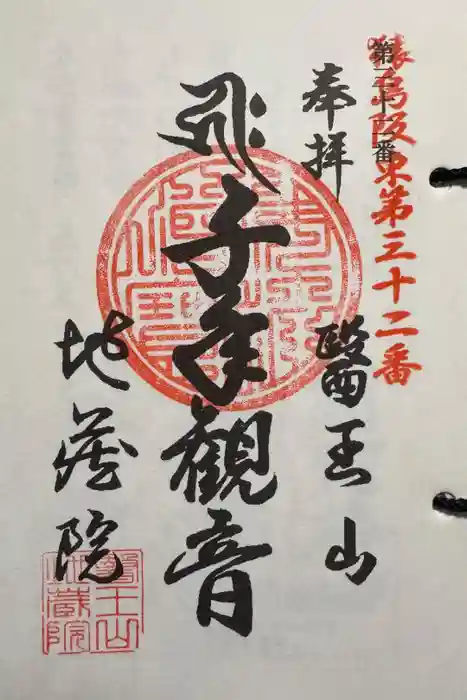 猿島阪東第三十二番
第二十一番
奉拝
醫王山
千手觀音
地蔵院
醫王山
地蔵院